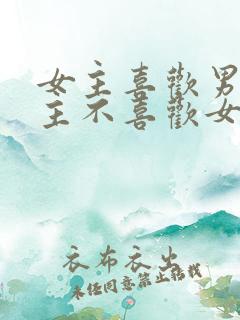 女主喜歡男
主不喜歡女
衣布衣出
未經同意禁止轉載